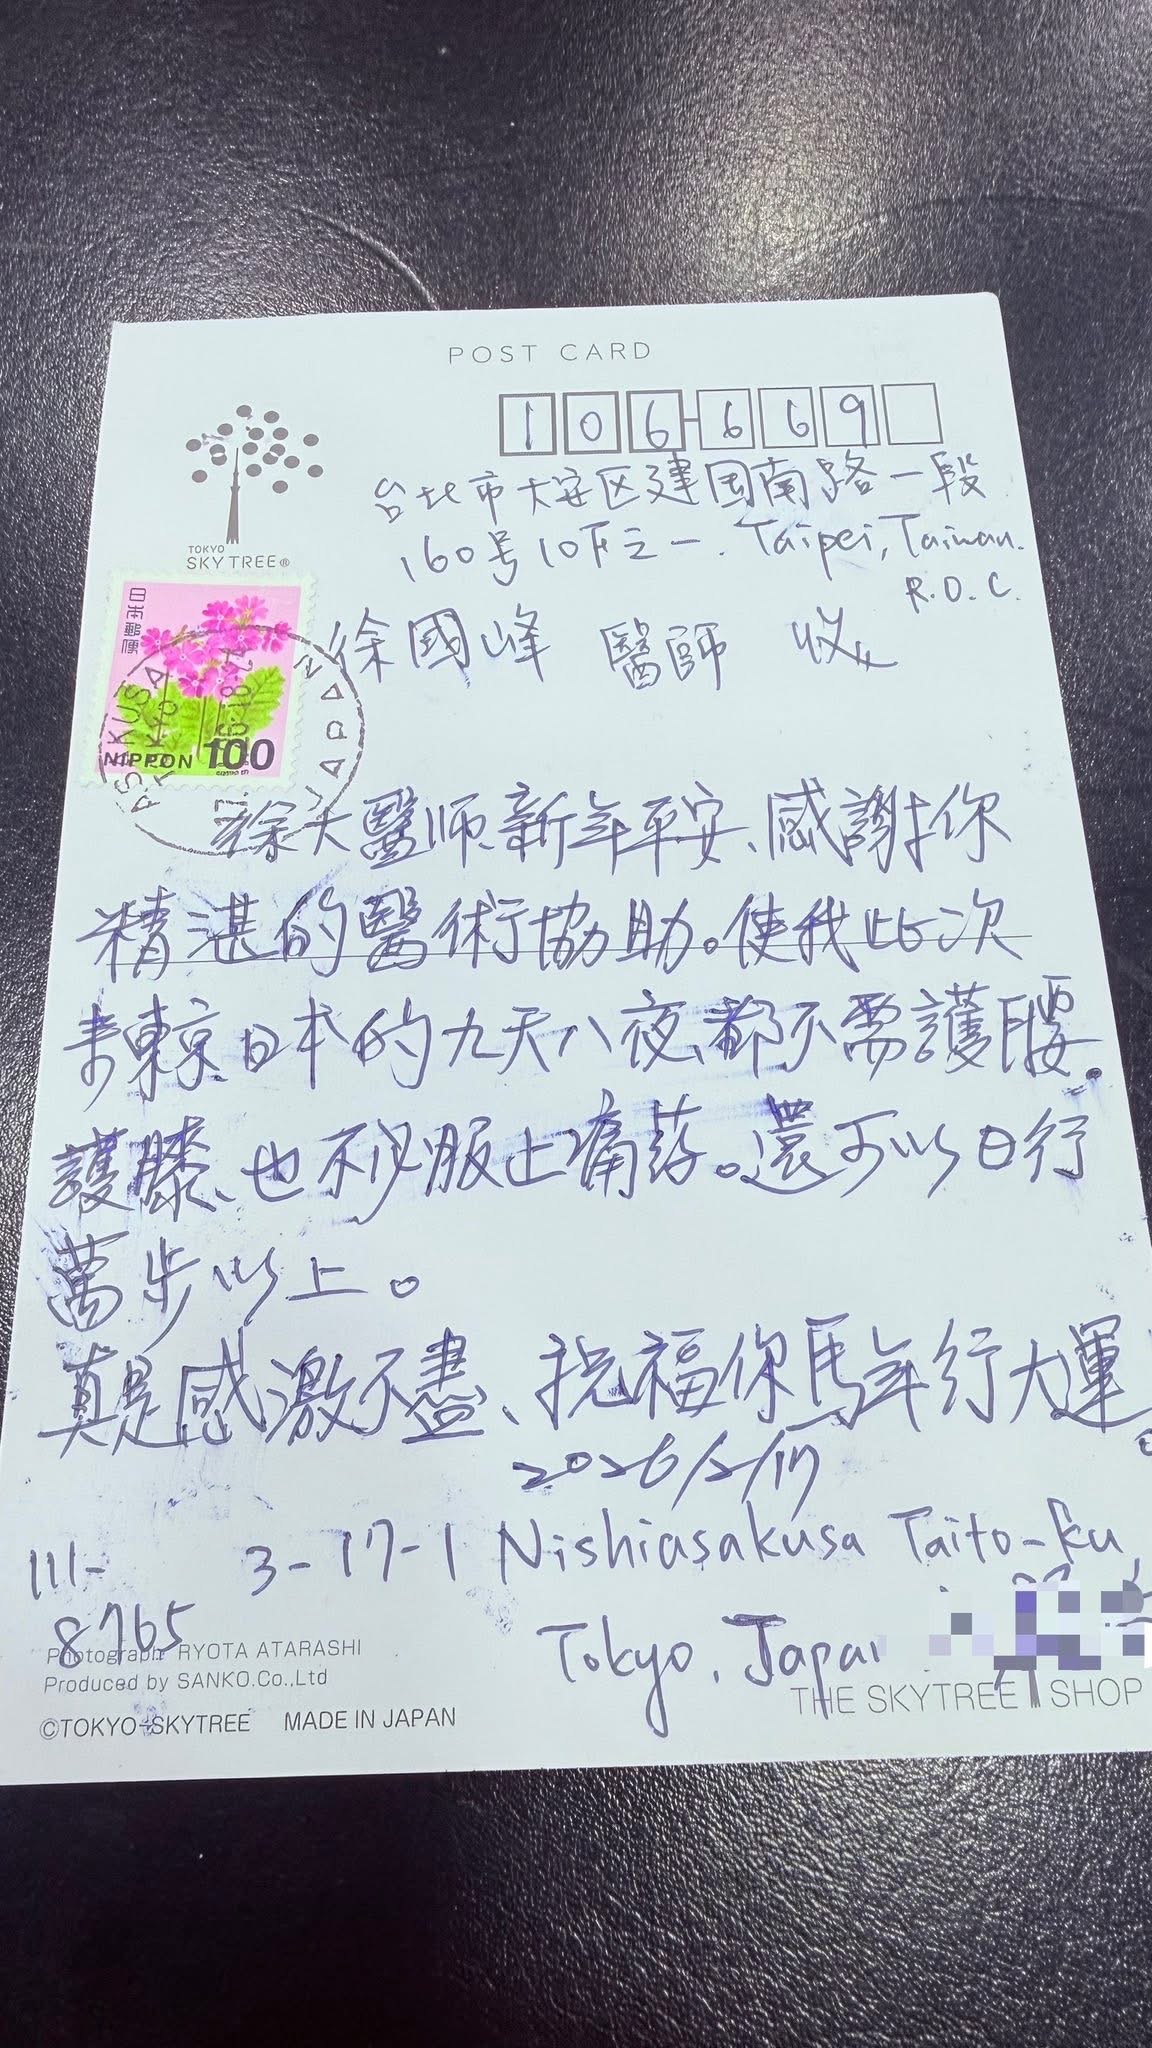 POST CARD
106-669
TOKYO
SKYTREE®
台北市大安区建国南路一段
160号10F之一. Taipei, Taiwan.
R.O.C.
日本郵便
NIPPON 100
徐國峰 醫師 收
JAPAN
徐大醫師、新年平安、感謝你
精湛的醫術協助。使我此次
來東京、日本的九天八夜、都不需護腰.
護膝、也不必服止痛药。還可以日行
萬步以上。
真是感激不盡、祝福你馬年行大運。
2026/2/17
111-8765
3-17-1 Nishiasakusa Taito-ku,
Tokyo, Japan
Photograph RYOTA ATARASHI
Produced by SANKO.Co.,Ltd
©TOKYO-SKYTREE MADE IN JAPAN
THE SKYTREE SHOP